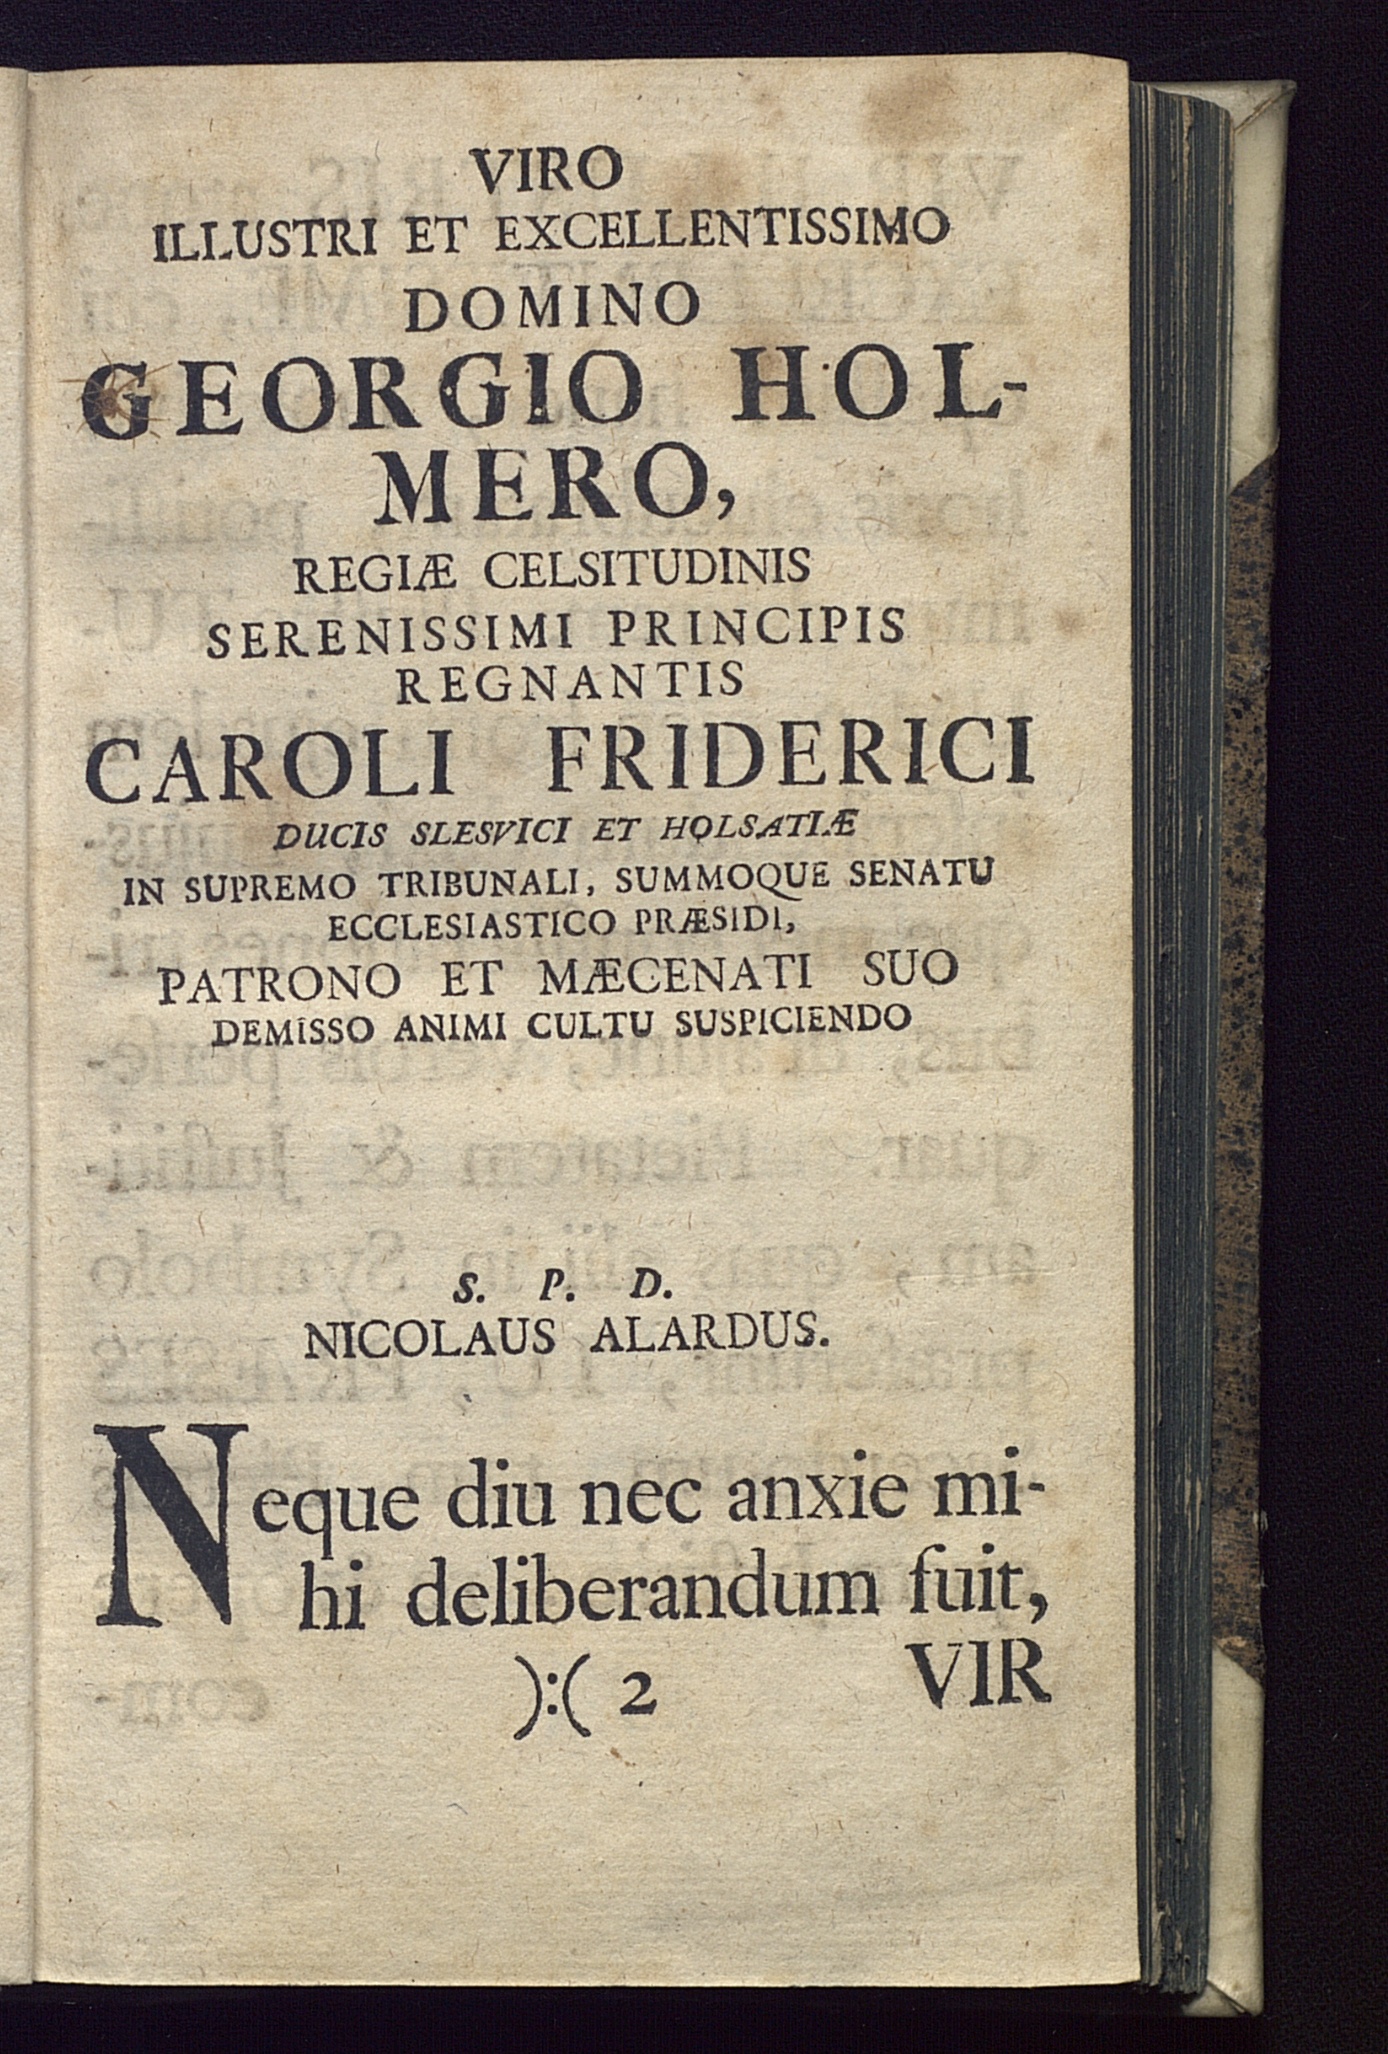 VIRO
ILLUSTRI ET EXCELLENTISSIMO
DOMINO
GEORGIO HOL-
MERO,
REGIÆ CELSITUDINIS
SERENISSIMI PRINCIPIS
REGNANTIS
CAROLI FRIDERICI
DUCIS SLESVICI ET HOLSATIÆ
IN SUPREMO TRIBUNALI, SUMMOQUE SENATU
ECCLESIASTICO PRÆSIDI,
PATRONO ET MÆCENATI SUO
DEMISSO ANIMI CULTU SUSPICIENDO
S. P. D.
NICOLAUS ALARDUS.
Neque diu nec anxie mi-
hi deliberandum fuit,
):( 2 VIR